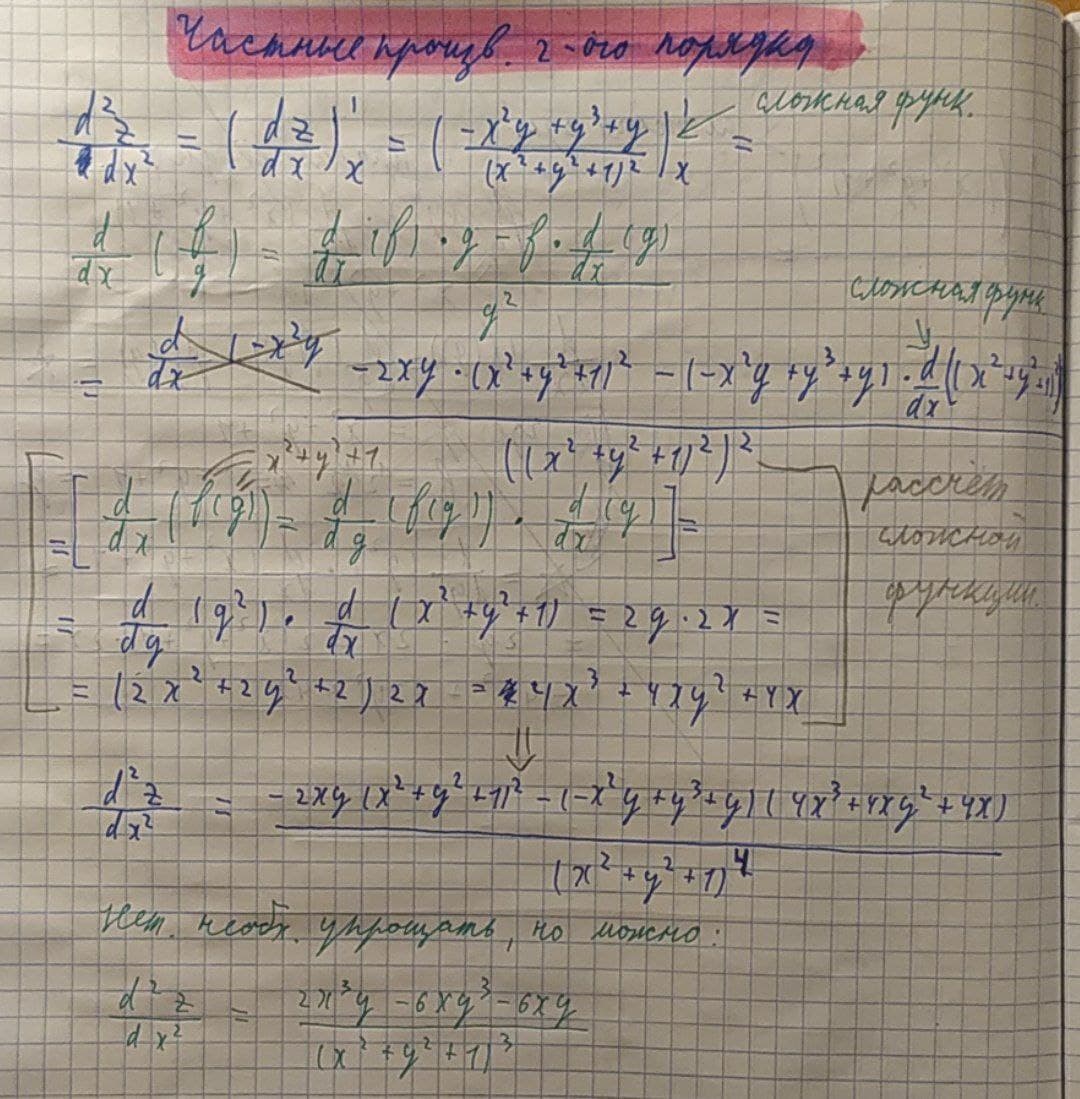 Частные произв. 2-ого порядка
d²z/dx² = (dz/dx)'ₓ = ((-x²y + y³ + y)/(x² + y² + 1)²)'ₓ = сложная функ.
d/dx (f/g) = (d/dx (f) · g - f · d/dx (g))/g²
сложная функ
= (-2xy · (x² + y² + 1)² - (-x²y + y³ + y) · d/dx((x² + y² + 1)²))/((x² + y² + 1)²)²
x² + y² + 1
= [d/dx (f(g)) = d/dg (f(g)) · d/dx (g)] =
рассчёт
сложной
функции
= d/dg (g²) · d/dx (x² + y² + 1) = 2g · 2x =
= (2x² + 2y² + 2) 2x = 4x³ + 4xy² + 4x
⇓
d²z/dx² = (-2xy (x² + y² + 1)² - (-x²y + y³ + y) (4x³ + 4xy² + 4x))/(x² + y² + 1)⁴
Нет. необх. упрощать, но можно:
d²z/dx² = (2x³y - 6xy³ - 6xy)/(x² + y² + 1)³